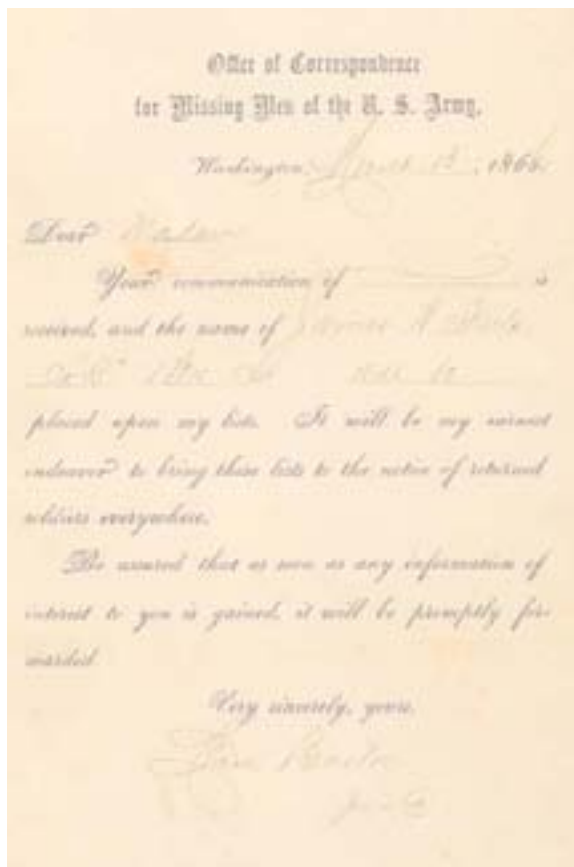 Office of Correspondence
for Missing Men of the U. S. Army,
Washington, 186
Dear Madam
Your communication of is
received, and the name of James
will be
placed upon my lists. It will be my earnest
endeavor to bring these lists to the notice of returned
soldiers everywhere.
Be assured that as soon as any information of
interest to you is gained, it will be promptly for-
warded.
Very sincerely, yours,
Clara Barton